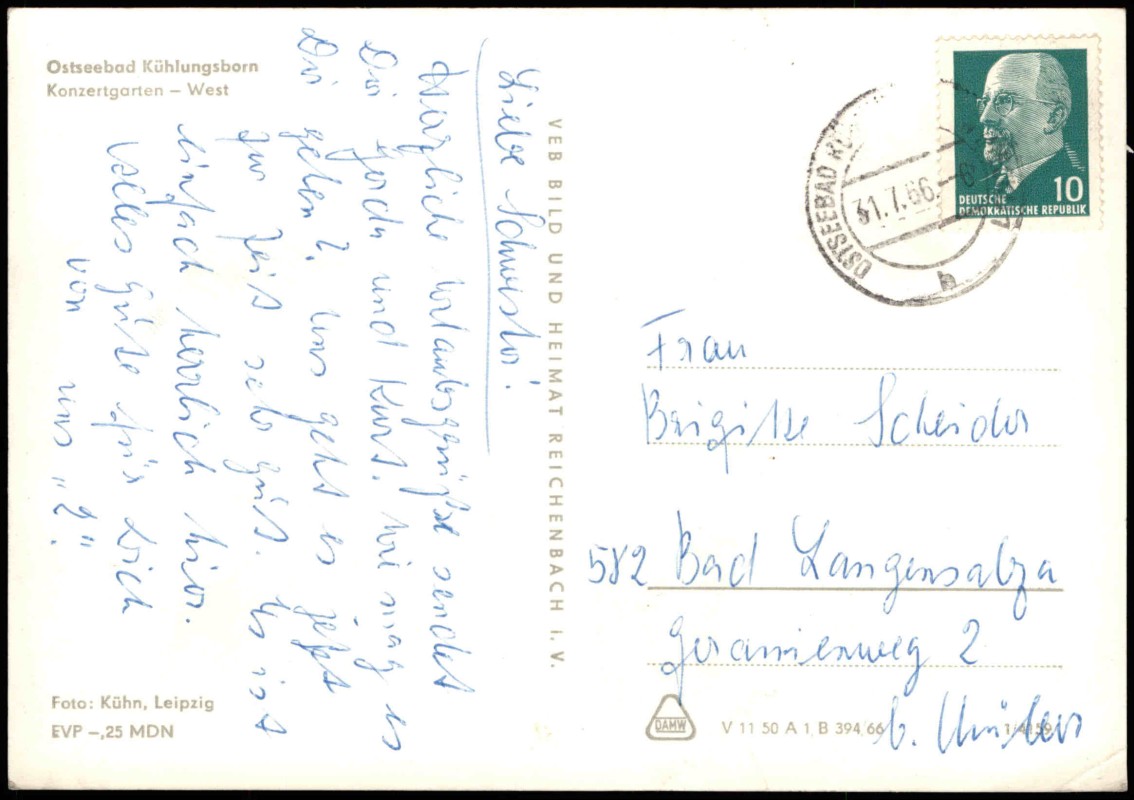 Ostseebad Kühlungsborn
Konzertgarten – West
Liebe Schwester!
Herzliche Urlaubsgrüße sendet
Dir Gerda und Kurt. Wie mag es
Dir gehen? Uns geht es jetzt
zur Zeit sehr gut. Es ist
einfach herrlich hier.
Alles Gute für Dich
von uns "2".
VEB BILD UND HEIMAT REICHENBACH I. V.
Foto: Kühn, Leipzig
EVP –,25 MDN
OSTSEEBAD
31.7.66
b
10
DEUTSCHE
DEMOKRATISCHE REPUBLIK
Frau
Brigitte Scheider
582 Bad Langensalza
Geranienweg 2
b.
DAMW
V 11 50 A 1 B 394/66